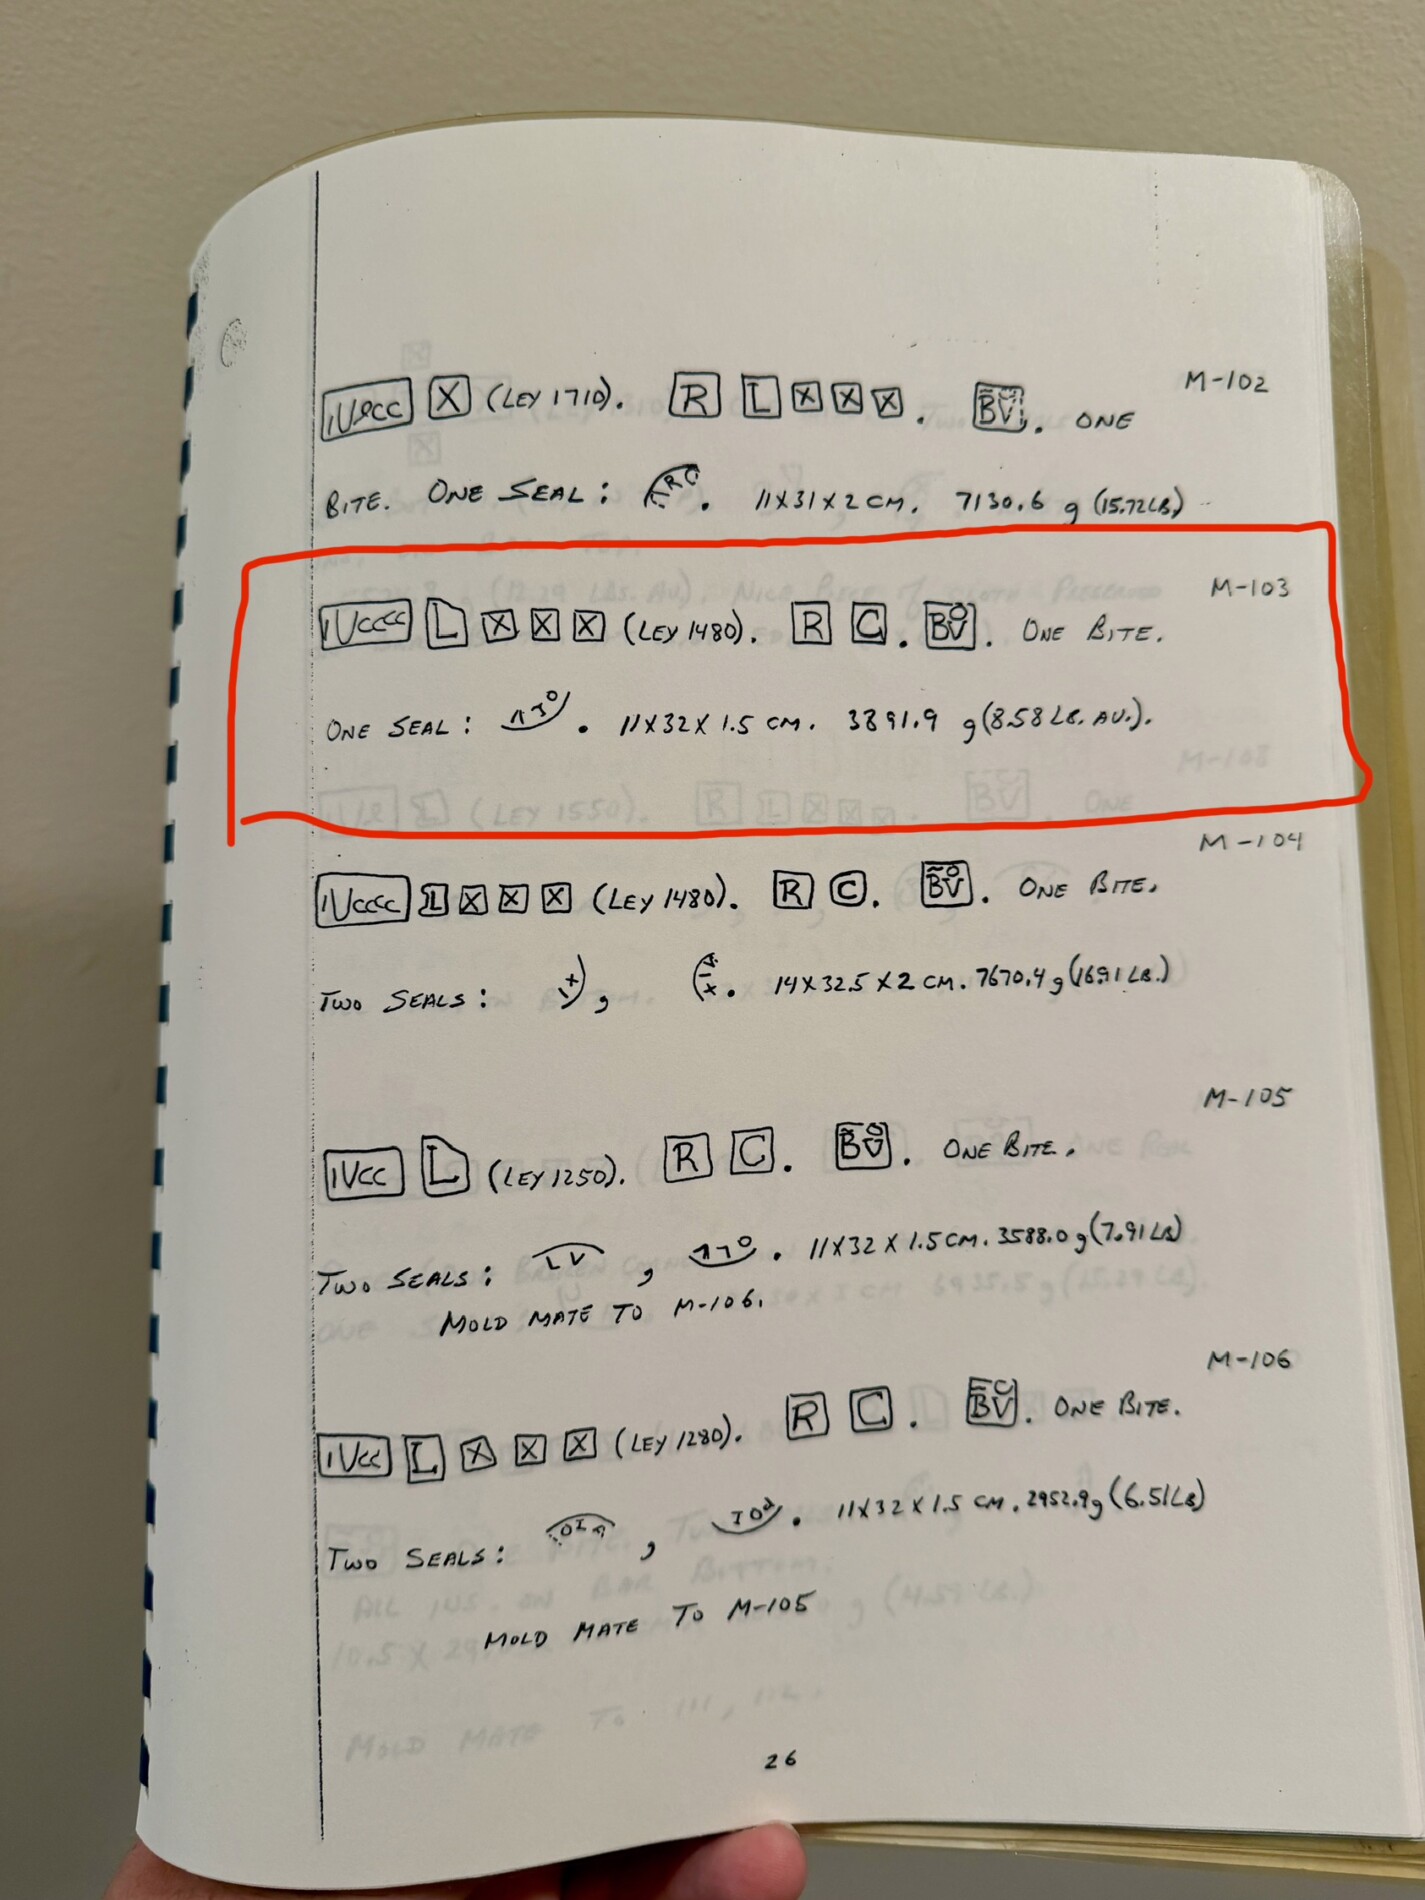 M-102
IVDCC X (LEY 1710). R L X X X. BV. ONE
BITE. ONE SEAL: . 11X31X2 CM. 7130.6 g (15.72LB.)
M-103
IVCCCC L X X X (LEY 1480). R C. BV. ONE BITE.
ONE SEAL: . 11X32X1.5 CM. 3891.9 g (8.58 LB. AV.).
M-104
IVCCCC L X X X (LEY 1480). R C. BV. ONE BITE.
TWO SEALS: , . 14X32.5X2 CM. 7670.4 g (16.91 LB.)
M-105
IVCC L (LEY 1250). R C. BV. ONE BITE.
TWO SEALS: LV, . 11X32X1.5 CM. 3588.0 g (7.91 LB)
MOLD MATE TO M-106.
M-106
IVCC L X X X (LEY 1280). R C. BV. ONE BITE.
TWO SEALS: , . 11X32X1.5 CM. 2952.9g (6.51LB)
MOLD MATE TO M-105
26